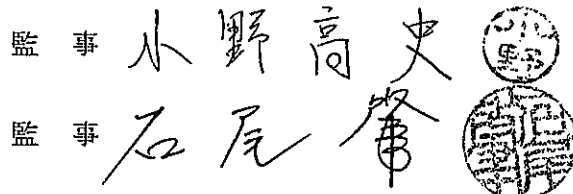 監事 小野高史 小野
監事 石尾肇